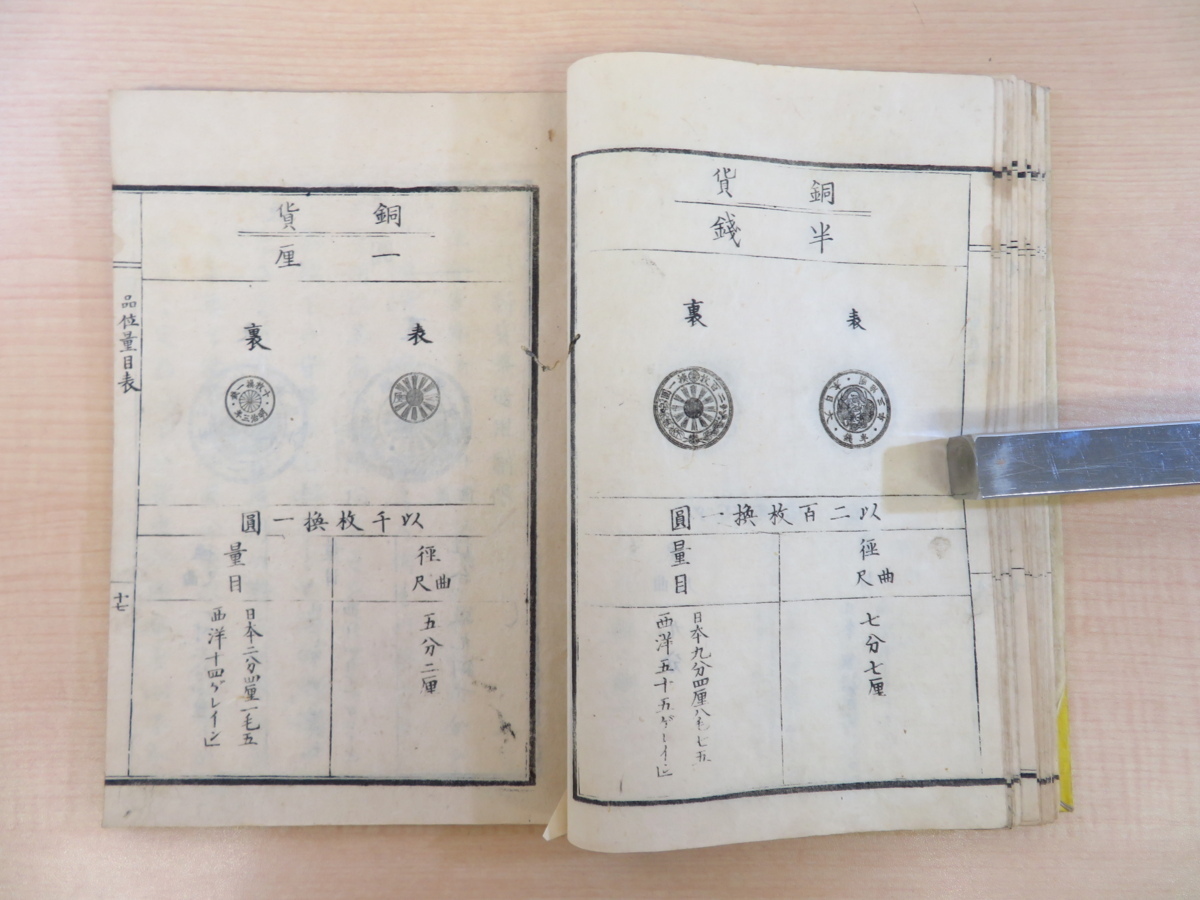 銅貨
半錢
表
裏
以二百枚換一圓
徑曲尺
七分七厘
量目
日本九分四厘八毛七五
西洋五十五
銅貨
一厘
表
裏
以千枚換一圓
徑曲尺
五分二厘
量目
日本二分四厘一毛五
西洋十四ゲレイン
品位量目表
十七